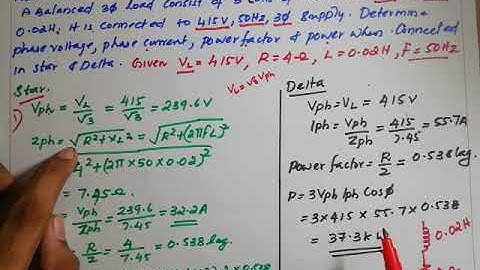 A Balanced 3ϕ Load consist of 3 coils of
0.02H; it is connected to 415V, 50Hz, 3ϕ supply. Determine
phase voltage, phase current, power factor & power when connected
in star & Delta. Given VL = 415V, R = 4Ω, L = 0.02H, F = 50Hz
VL = √3 Vph
Star.
1)
Vph = VL/√3 = 415/√3 = 239.6V
Zph = √R²+XL² = √R²+(2πfL)²
4² + (2π × 50 × 0.02)²
= 7.45Ω.
= Vph/Zph = 239.6/7.45 = 32.2A
R/Z = 4/7.45 = 0.538 lag.
Delta
Vph = VL = 415V
Iph = Vph/Zph = 415/7.45 = 55.7A
Power factor = R/Z = 0.538 lag.
P = 3 Vph Iph Cosϕ
= 3 × 415 × 55.7 × 0.538
= 37.3k
0.02H